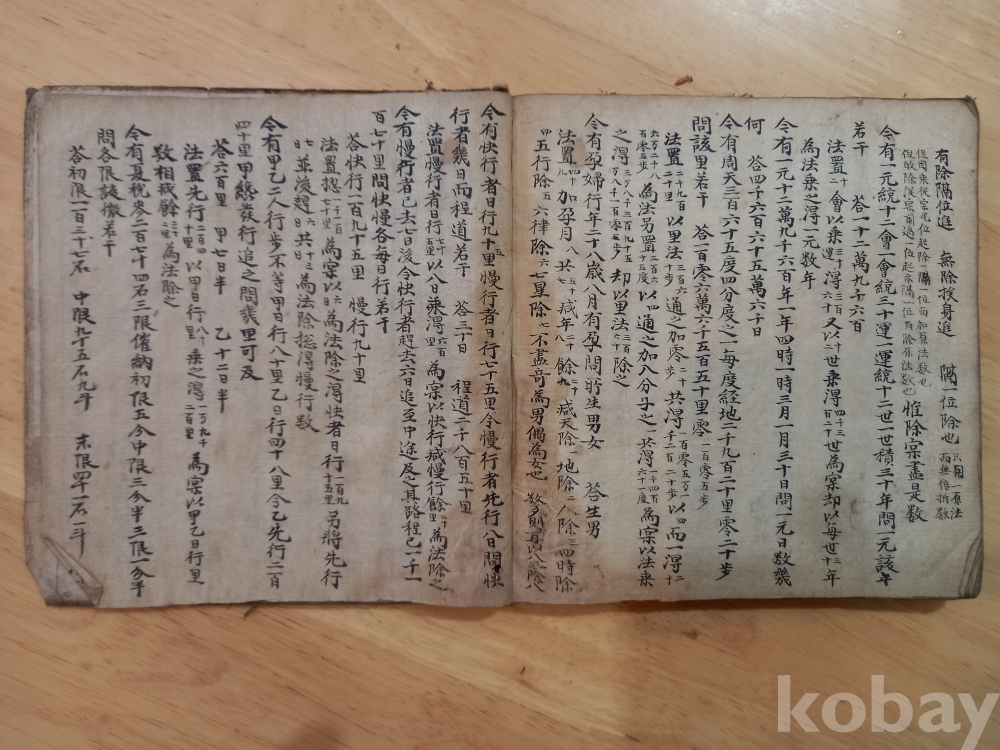 有除隔位進 無除挨身進 隔一位除也 只用一原法 而無倍折數
惟除宗盡是數
令有一元統十二會一會統三十運一運統十二世一世積三十年問一元該年
若干 答十二萬九千六百
法置十二會以三十運乘之得三百六十又以十二世乘得四千三百二十世為宗却以每世三十年
為法乘之得一元數年
令有一元十二萬九千六百年一年四時一時三月一月三十日問一元日數幾
何 答四千六百六十五萬六千日
令有周天三百六十五度四分度之一每度経地二千九百二十里零二十步
問該里若干 答一百零六萬六千五百五十里零一百零五步
法置二千九百二十里以里法三百六十步通之加零二十步共得一百零五萬一千二百二十步以四而一得二十
六万二千八百零五步為法另置三百六十五度以四通之加八分子之一共得一千四百六十一度為宗以法乘
之得三万八千三百九十五万八千一百零五步却以里法三百六十除之
令有孕婦行年二十八歲八月有孕問所生男女 答生男
法置四十九加孕月八共五十七減年二十八餘二十九減天除一地除二人除三四時除
四五行除五六律除六七星除七不盡奇為男偶為女也 數多則再以八風除八
令有快行者日行九十五里慢行者日行七十五里令慢行者先行八日問快
行者幾日而程道若干 答三十日 程道二千八百五十里
法置慢行者日行七十五里以八日乘得六百里為宗以快行減慢行餘二十里為法除之
令有慢行者已去七日後令快行者趕去六日追至中途及之其路程已一千一
百七十里問快慢各每日行若干
答快行一百九十五里 慢行九十里
法置捴一千一百七十里為宗以六日為法除之得快者日行一百九十五里另將先行
七日並後趕六日共十三日為法除捴得慢行數
令有甲乙二人行步不等甲日行八十里乙日行四十八里令乙先行二百
四十里甲終發行追之問幾里可及
答六百里 甲七日半 乙十二日半
法置先行二百四十里以甲日行八十里乘之得一万九千二百里為宗以甲乙日行里
數相減餘三十二里為法除之
令有夏稅叁二百七十四石三限催納初限五分中限三分半三限一分半
問各限該徵若干
答初限一百三十七石 中限九十五石九斗 末限四十一石一斗